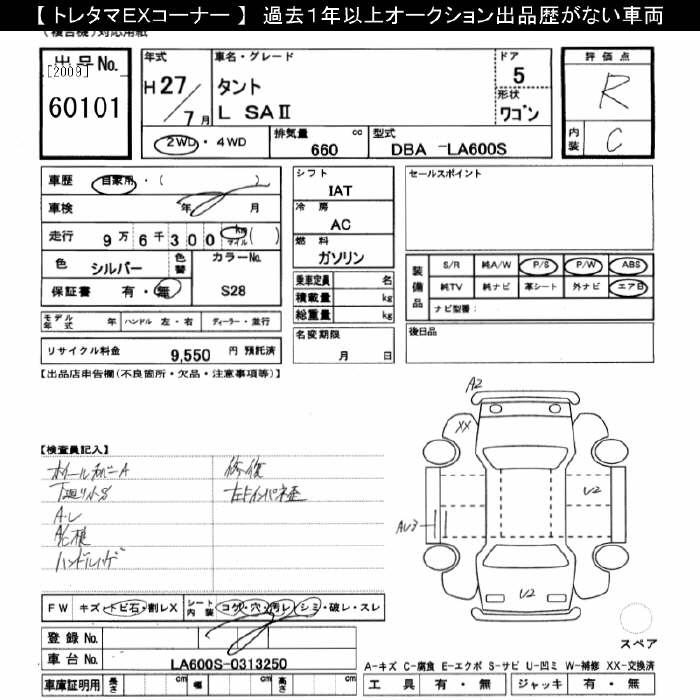 【 トレタマEXコーナー 】 過去1年以上オークション出品歴がない車両
(複合機)対応用紙
出品 No.
[2009]
60101
年式
H 27/7月
車名・グレード
タント
L SAⅡ
ドア
5
形状
ワゴン
評価点
R
内装
C
2WD・4WD
排気量 cc
660
型式
DBA -LA600S
車歴 自家用・( )
車検 年 月
走行 9万6千300 km マイル ( )
色 シルバー 色替 カラーNo.
保証書 有・無 S28
シフト
IAT
冷房
AC
燃料
ガソリン
乗車定員 名
積載量 kg
総重量 kg
セールスポイント
装備品
S/R 純A/W P/S P/W ABS
純TV 純ナビ 革シート 外ナビ エアB
ナビ型番:
モデル年式 年 ハンドル 左・右 ディーラー・並行
リサイクル料金 9,550 円 預託済
名変期限
月 日
後日品
【出品店申告欄(不良箇所・欠品・注意事項等)】
【検査員記入】
ホイールカバーA
下廻り小S
A・レ
ハンドルハゲ
修復
左Fインパネ歪
A2
XX
U2
AU3
U2
スペア
FW キズ・トビ石・割レX シート内装 コゲ・穴・汚レ・シミ・破レ・スレ
登録 No.
車台 No. LA600S-0313250
車庫証明用 長さ cm 幅 cm 高さ cm
A-キズ C-腐食 E-エクボ S-サビ U-凹ミ W-補修 XX-交換済
工具 有・無 ジャッキ 有・無